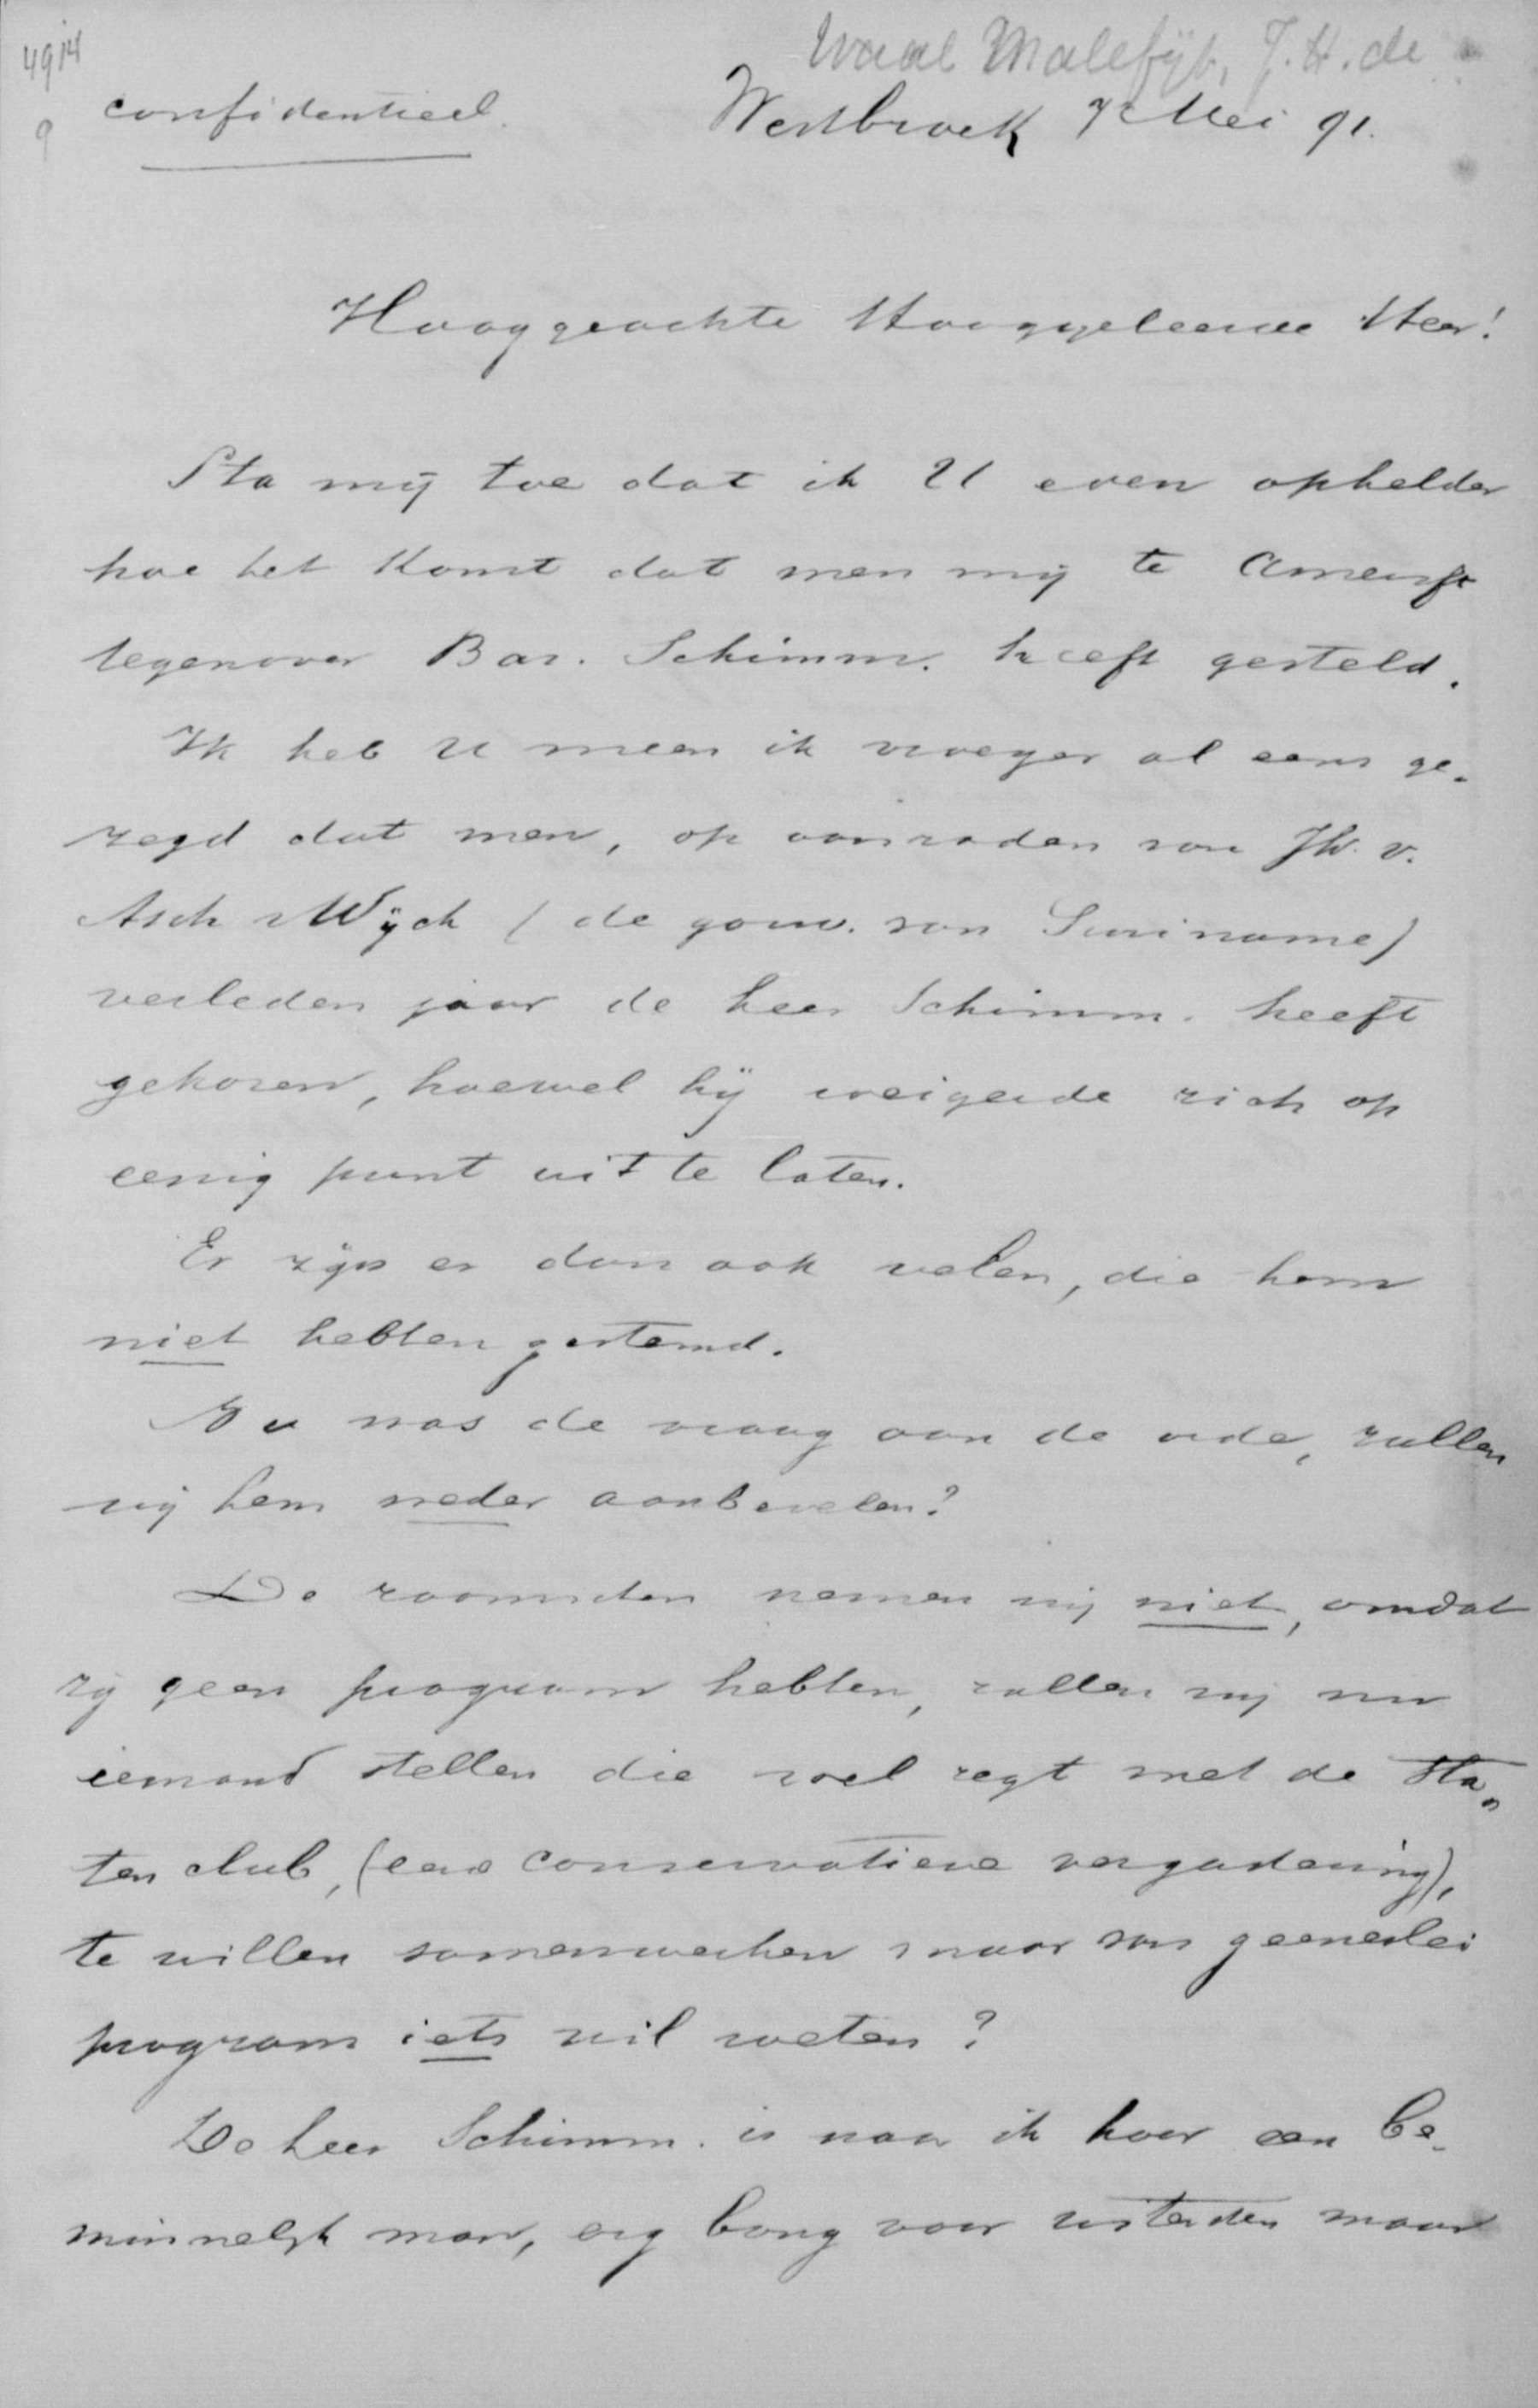 4914
Waal Malefijt, J. H. de
9
confidentieel.
Westbroek 7 Mei 91.
Hooggeachte Hooggeleerde Heer!
Sta mij toe dat ik U even ophelder
hoe het komt dat men mij te Amersft
tegenover Bar. Schimm. heeft gesteld.
Ik heb U meen ik vroeger al eens ge-
zegd dat men, op aanraden van Jhr. v.
Asch v Wijck (de gouv. van Suriname)
verleden jaar de heer Schimm. heeft
gekozen, hoewel hij weigerde zich op
eenig punt uit te laten.
Er zijn er dan ook velen, die hem
niet hebben gestemd.
Nu was de vraag aan de orde, zullen
wij hem weder aanbevelen?
De roomsden nemen wij niet, omdat
zij geen program hebben, zullen wij nu
iemand stellen die wel zegt met de Sta-
ten club, (eene conservatieve vergadering),
te willen samenwerken maar van geenerlei
program iets wil weten?
De heer Schimm. is naar ik hoor een be-
minnelijk man, erg bang voor uitersten maar